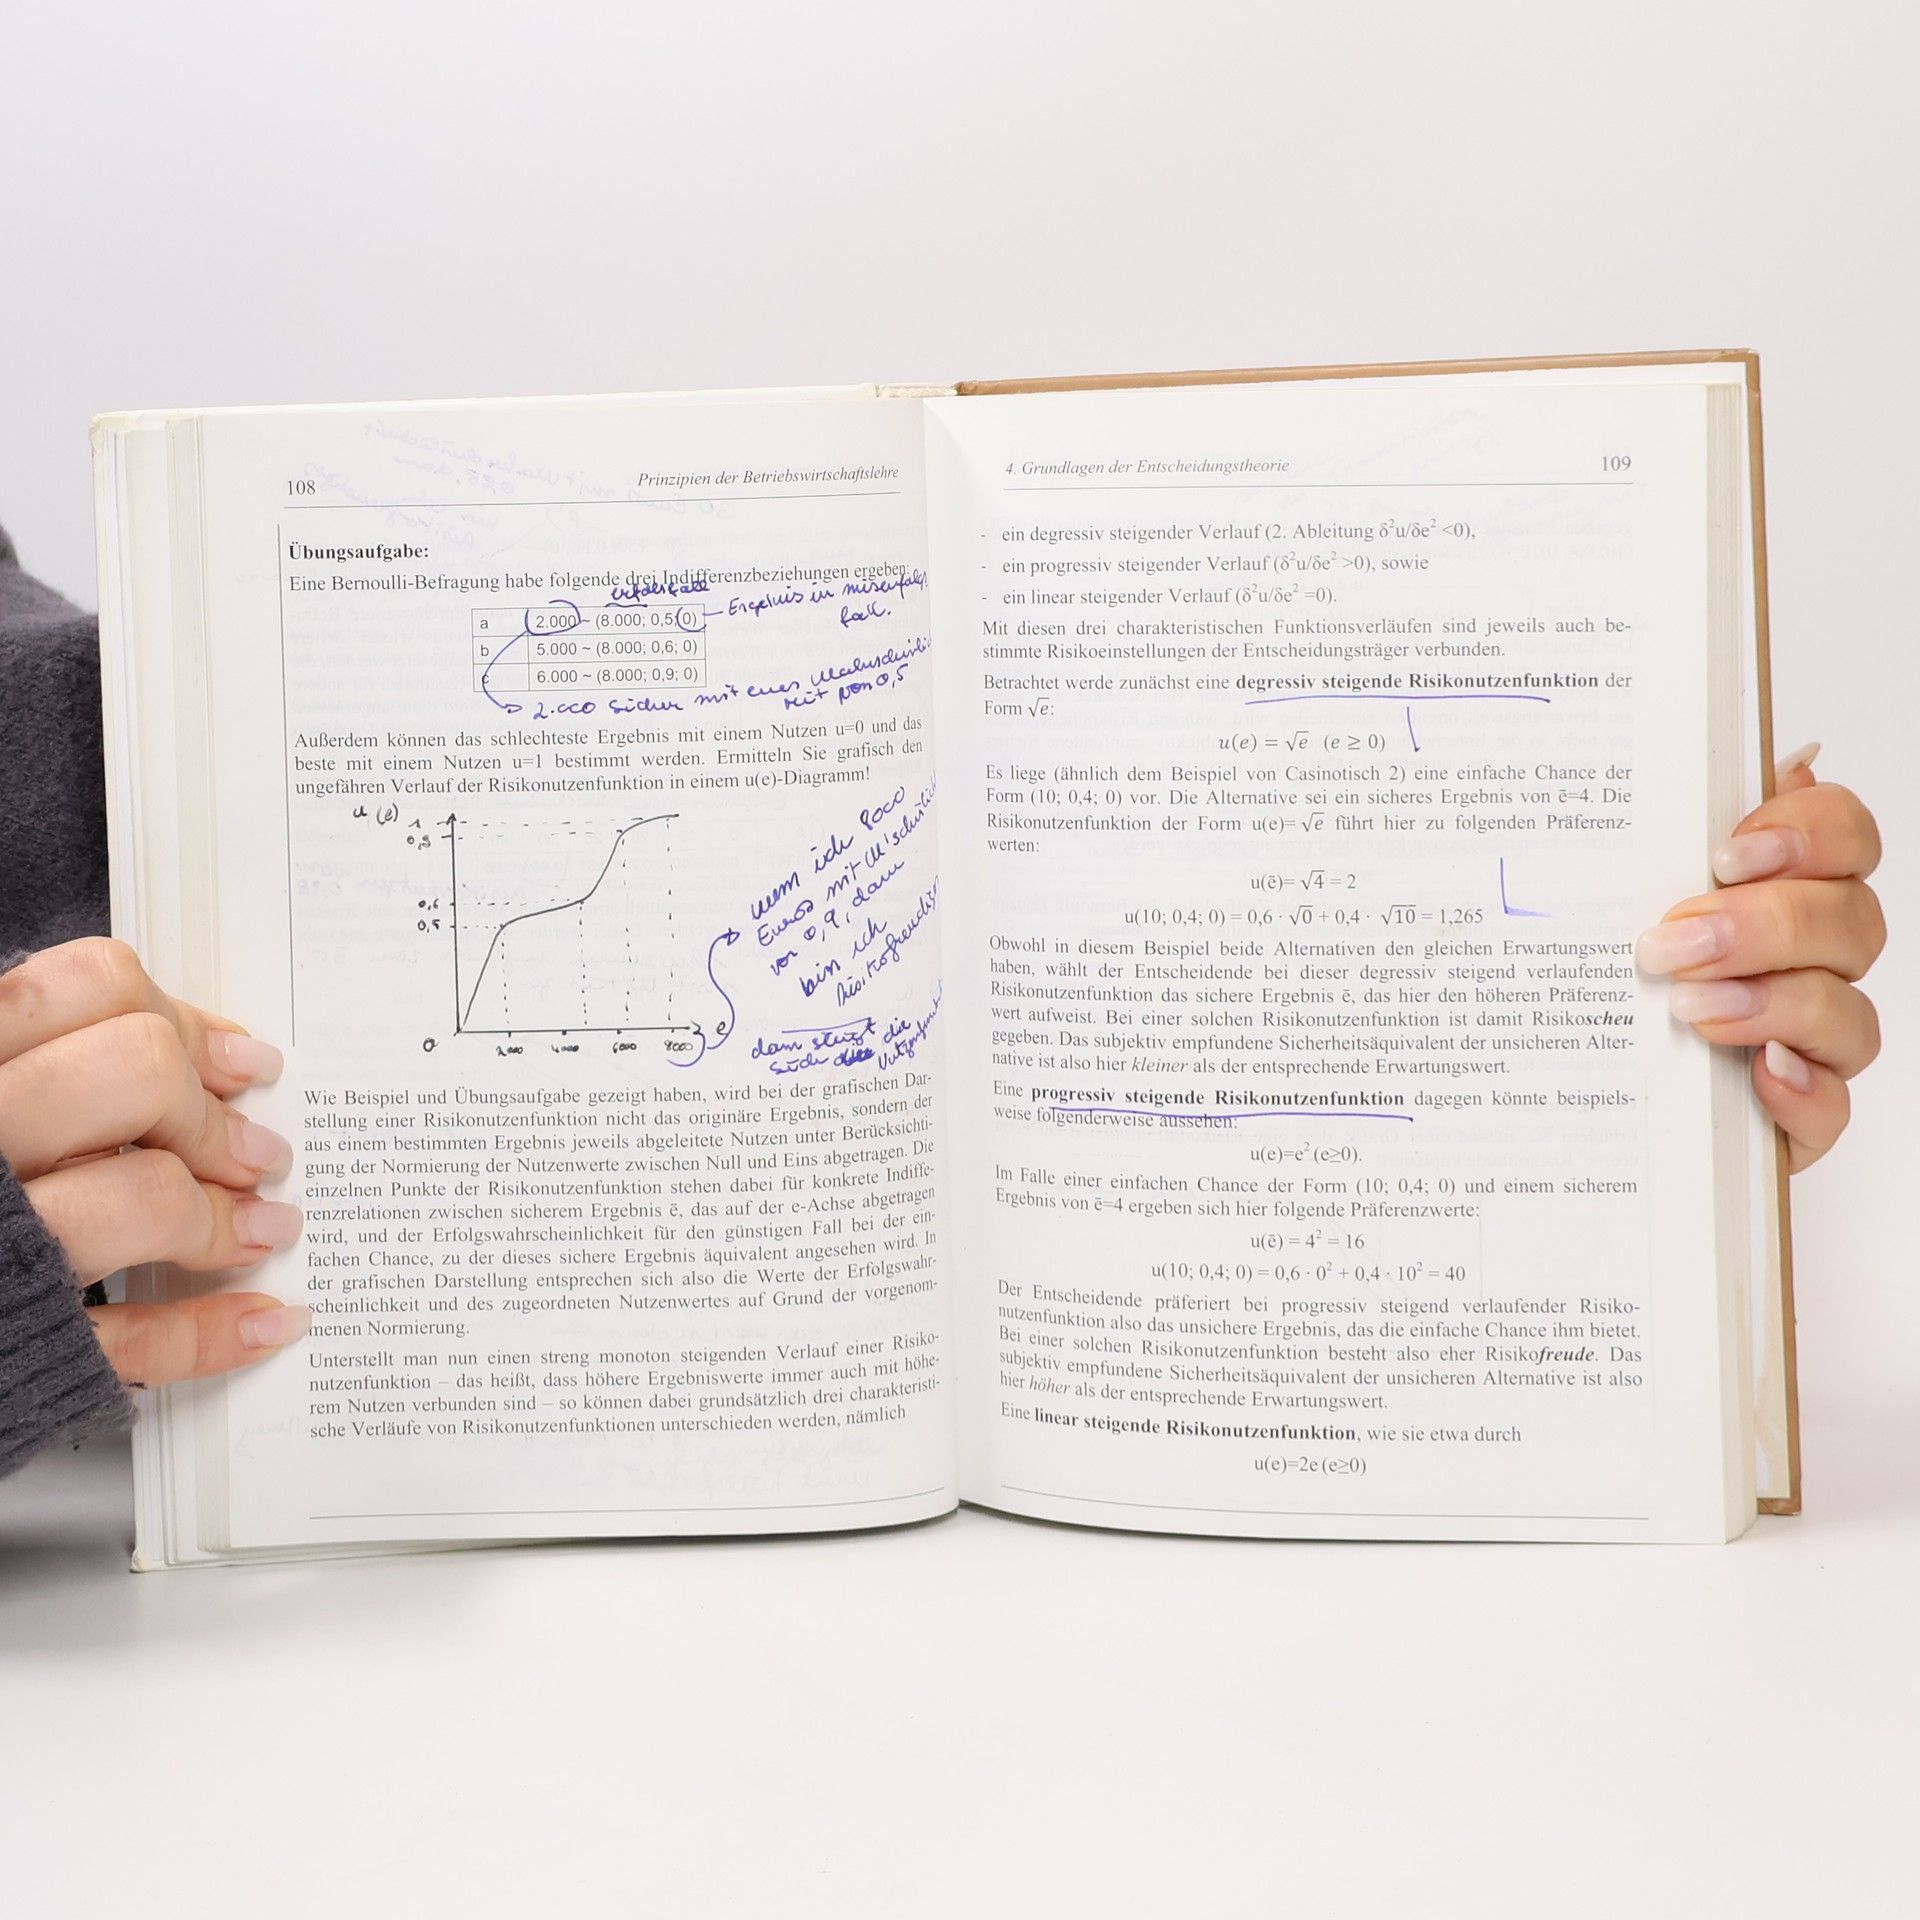 108
Prinzipien der Betriebswirtschaftslehre
Übungsaufgabe:
Eine Bernoulli-Befragung habe folgende drei Indifferenzbeziehungen ergeben:
a 2.000 ~ (8.000; 0,5; 0)
Ergebnis in
b 5.000 ~ (8.000; 0,6; 0)
c 6.000 ~ (8.000; 0,9; 0)
2.000 sicher mit einer
von 0,5
Außerdem können das schlechteste Ergebnis mit einem Nutzen u=0 und das
beste mit einem Nutzen u=1 bestimmt werden. Ermitteln Sie grafisch den
ungefähren Verlauf der Risikonutzenfunktion in einem u(e)-Diagramm!
u (e)
1
0,9
0,6
0,5
0
2000 4000 6000 8000
e
wenn ich 8000
Euros mit
von 0,9, dann
bin ich
dann steigt
die
Wie Beispiel und Übungsaufgabe gezeigt haben, wird bei der grafischen Dar-
stellung einer Risikonutzenfunktion nicht das originäre Ergebnis, sondern der
aus einem bestimmten Ergebnis jeweils abgeleitete Nutzen unter Berücksichti-
gung der Normierung der Nutzenwerte zwischen Null und Eins abgetragen. Die
einzelnen Punkte der Risikonutzenfunktion stehen dabei für konkrete Indiffe-
renzrelationen zwischen sicherem Ergebnis ē, das auf der e-Achse abgetragen
wird, und der Erfolgswahrscheinlichkeit für den günstigen Fall bei der ein-
fachen Chance, zu der dieses sichere Ergebnis äquivalent angesehen wird. In
der grafischen Darstellung entsprechen sich also die Werte der Erfolgswahr-
scheinlichkeit und des zugeordneten Nutzenwertes auf Grund der vorgenom-
menen Normierung.
Unterstellt man nun einen streng monoton steigenden Verlauf einer Risiko-
nutzenfunktion – das heißt, dass höhere Ergebniswerte immer auch mit höhe-
rem Nutzen verbunden sind – so können dabei grundsätzlich drei charakteristi-
sche Verläufe von Risikonutzenfunktionen unterschieden werden, nämlich
4. Grundlagen der Entscheidungstheorie
109
- ein degressiv steigender Verlauf (2. Ableitung δ²u/δe² <0),
- ein progressiv steigender Verlauf (δ²u/δe² >0), sowie
- ein linear steigender Verlauf (δ²u/δe² =0).
Mit diesen drei charakteristischen Funktionsverläufen sind jeweils auch be-
stimmte Risikoeinstellungen der Entscheidungsträger verbunden.
Betrachtet werde zunächst eine degressiv steigende Risikonutzenfunktion der
Form √e:
u(e) = √e (e ≥ 0)
Es liege (ähnlich dem Beispiel von Casinotisch 2) eine einfache Chance der
Form (10; 0,4; 0) vor. Die Alternative sei ein sicheres Ergebnis von ē=4. Die
Risikonutzenfunktion der Form u(e)= √e führt hier zu folgenden Präferenz-
werten:
u(ē)= √4 = 2
u(10; 0,4; 0) = 0,6 · √0 + 0,4 · √10 = 1,265
Obwohl in diesem Beispiel beide Alternativen den gleichen Erwartungswert
haben, wählt der Entscheidende bei dieser degressiv steigend verlaufenden
Risikonutzenfunktion das sichere Ergebnis ē, das hier den höheren Präferenz-
wert aufweist. Bei einer solchen Risikonutzenfunktion ist damit Risikoscheu
gegeben. Das subjektiv empfundene Sicherheitsäquivalent der unsicheren Alter-
native ist also hier kleiner als der entsprechende Erwartungswert.
Eine progressiv steigende Risikonutzenfunktion dagegen könnte beispiels-
weise folgenderweise aussehen:
u(e)=e² (e≥0).
Im Falle einer einfachen Chance der Form (10; 0,4; 0) und einem sicherem
Ergebnis von ē=4 ergeben sich hier folgende Präferenzwerte:
u(ē) = 4² = 16
u(10; 0,4; 0) = 0,6 · 0² + 0,4 · 10² = 40
Der Entscheidende präferiert bei progressiv steigend verlaufender Risiko-
nutzenfunktion also das unsichere Ergebnis, das die einfache Chance ihm bietet.
Bei einer solchen Risikonutzenfunktion besteht also eher Risikofreude. Das
subjektiv empfundene Sicherheitsäquivalent der unsicheren Alternative ist also
hier höher als der entsprechende Erwartungswert.
Eine linear steigende Risikonutzenfunktion, wie sie etwa durch
u(e)=2e (e≥0)